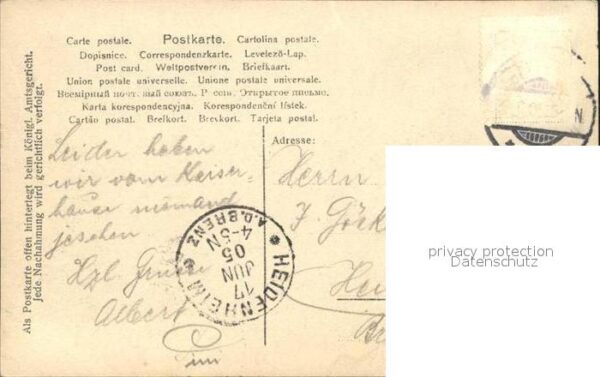 Carte postale. Postkarte. Cartolina postale.
Dopisnice. Correspondenzkarte. Levelező-Lap.
Post card. Weltpostverein. Briefkaart.
Union postale universelle. Unione postale universale.
Всемірный почт. ный союзъ. Р ссія. Открытое письмо.
Karta korespondencyjna. Korespondenční lístek.
Cartão postal. Brefkort. Brevkort. Tarjeta postal.
Als Postkarte offen hinterlegt beim Königl. Amtsgericht.
Jede Nachahmung wird gerichtlich verfolgt.
Leider haben
wir vom Kaiser-
hause niemand
gesehen
Hzl. Gruss
Albert
Adresse:
Herrn
J. Göck
HEIDENHEIM
A.D.BRENZ
17
JUN
05
4-5N
N
privacy protection
Datenschutz